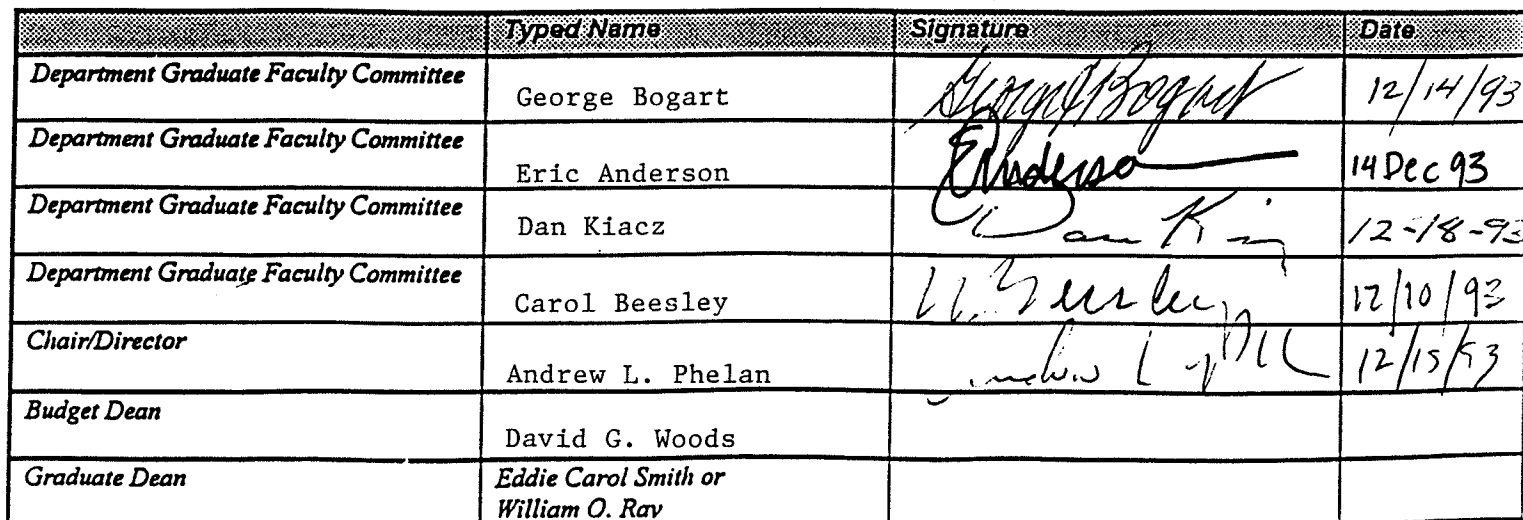 Typed Name Signature Date
Department Graduate Faculty Committee George Bogart George Bogart 12/14/93
Department Graduate Faculty Committee Eric Anderson EAnderson 14 Dec 93
Department Graduate Faculty Committee Dan Kiacz Dan 12-18-93
Department Graduate Faculty Committee Carol Beesley Beesley 12/10/93
Chair/Director Andrew L. Phelan 12/15/93
Budget Dean David G. Woods
Graduate Dean Eddie Carol Smith or
William O. Ray